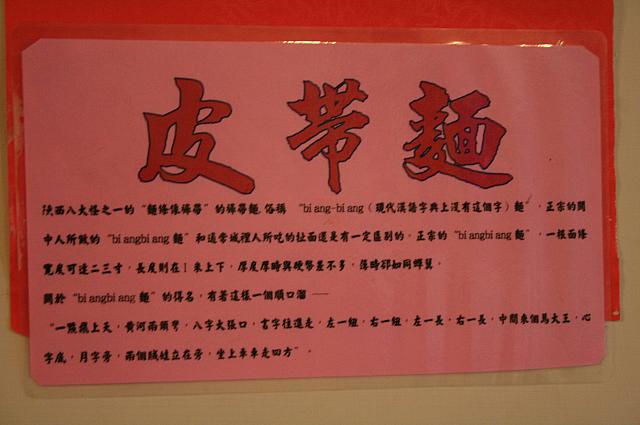 皮帶麵
陝西八大怪之一的“麵條像褲帶”的褲帶麵,俗稱 “bi ang-bi ang（現代漢語字典上沒有這個字）麵”，正宗的關
中人所做的“bi angbi ang 麵”和這常城裡人所吃的扯面還是有一定區別的，正宗的“biangbi ang 麵”，一根面條
寬度可達二三寸，長度則在1米上下，厚度厚時與硬幣差不多，薄時卻如同蟬翼。
關於“bi angbi ang 麵”的得名，有著這樣一個順口溜 ——
“一點飛上天，黃河兩頭彎，八字大張口，言字往進走，左一扭，右一扭，左一長，右一長，中間來個馬大王，心
字底，月字旁，兩個蛾娃立在旁，坐上車車走四方”。